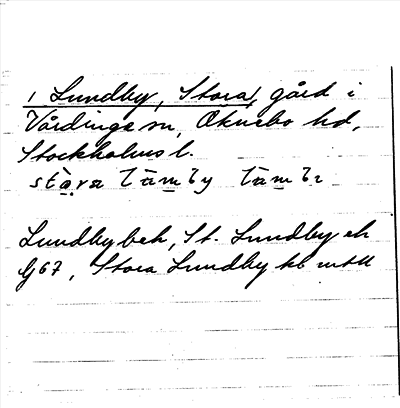 1 Lundby, Stora, gård i
Vårdinge sn, Öknebo hd,
Stockholms l.
Lundby beh, St. Lundby eh
G67, Stora Lundby kb mtll